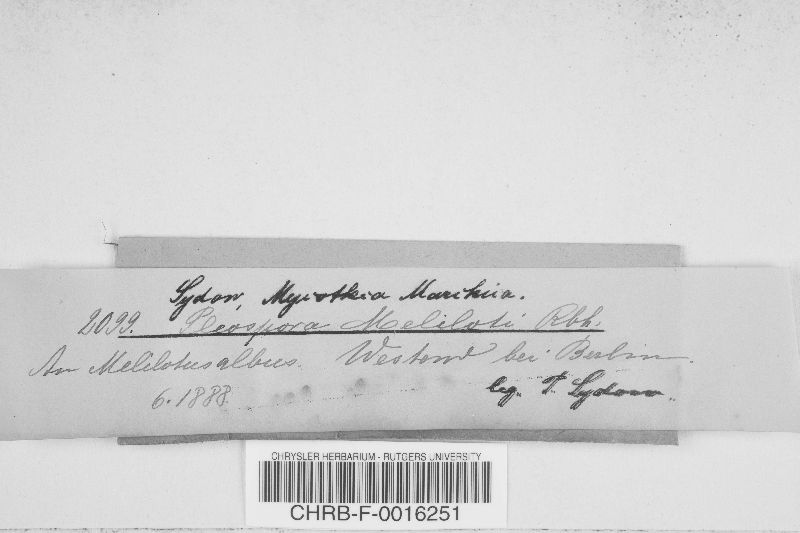 Sydow, Mycothica Marchica.
2099. Pleospora Meliloti Rbh.
An Melilotus albus. Westend bei Berlin.
6. 1888. leg. P. Sydow.
CHRYSLER HERBARIUM - RUTGERS UNIVERSITY
CHRB-F-0016251